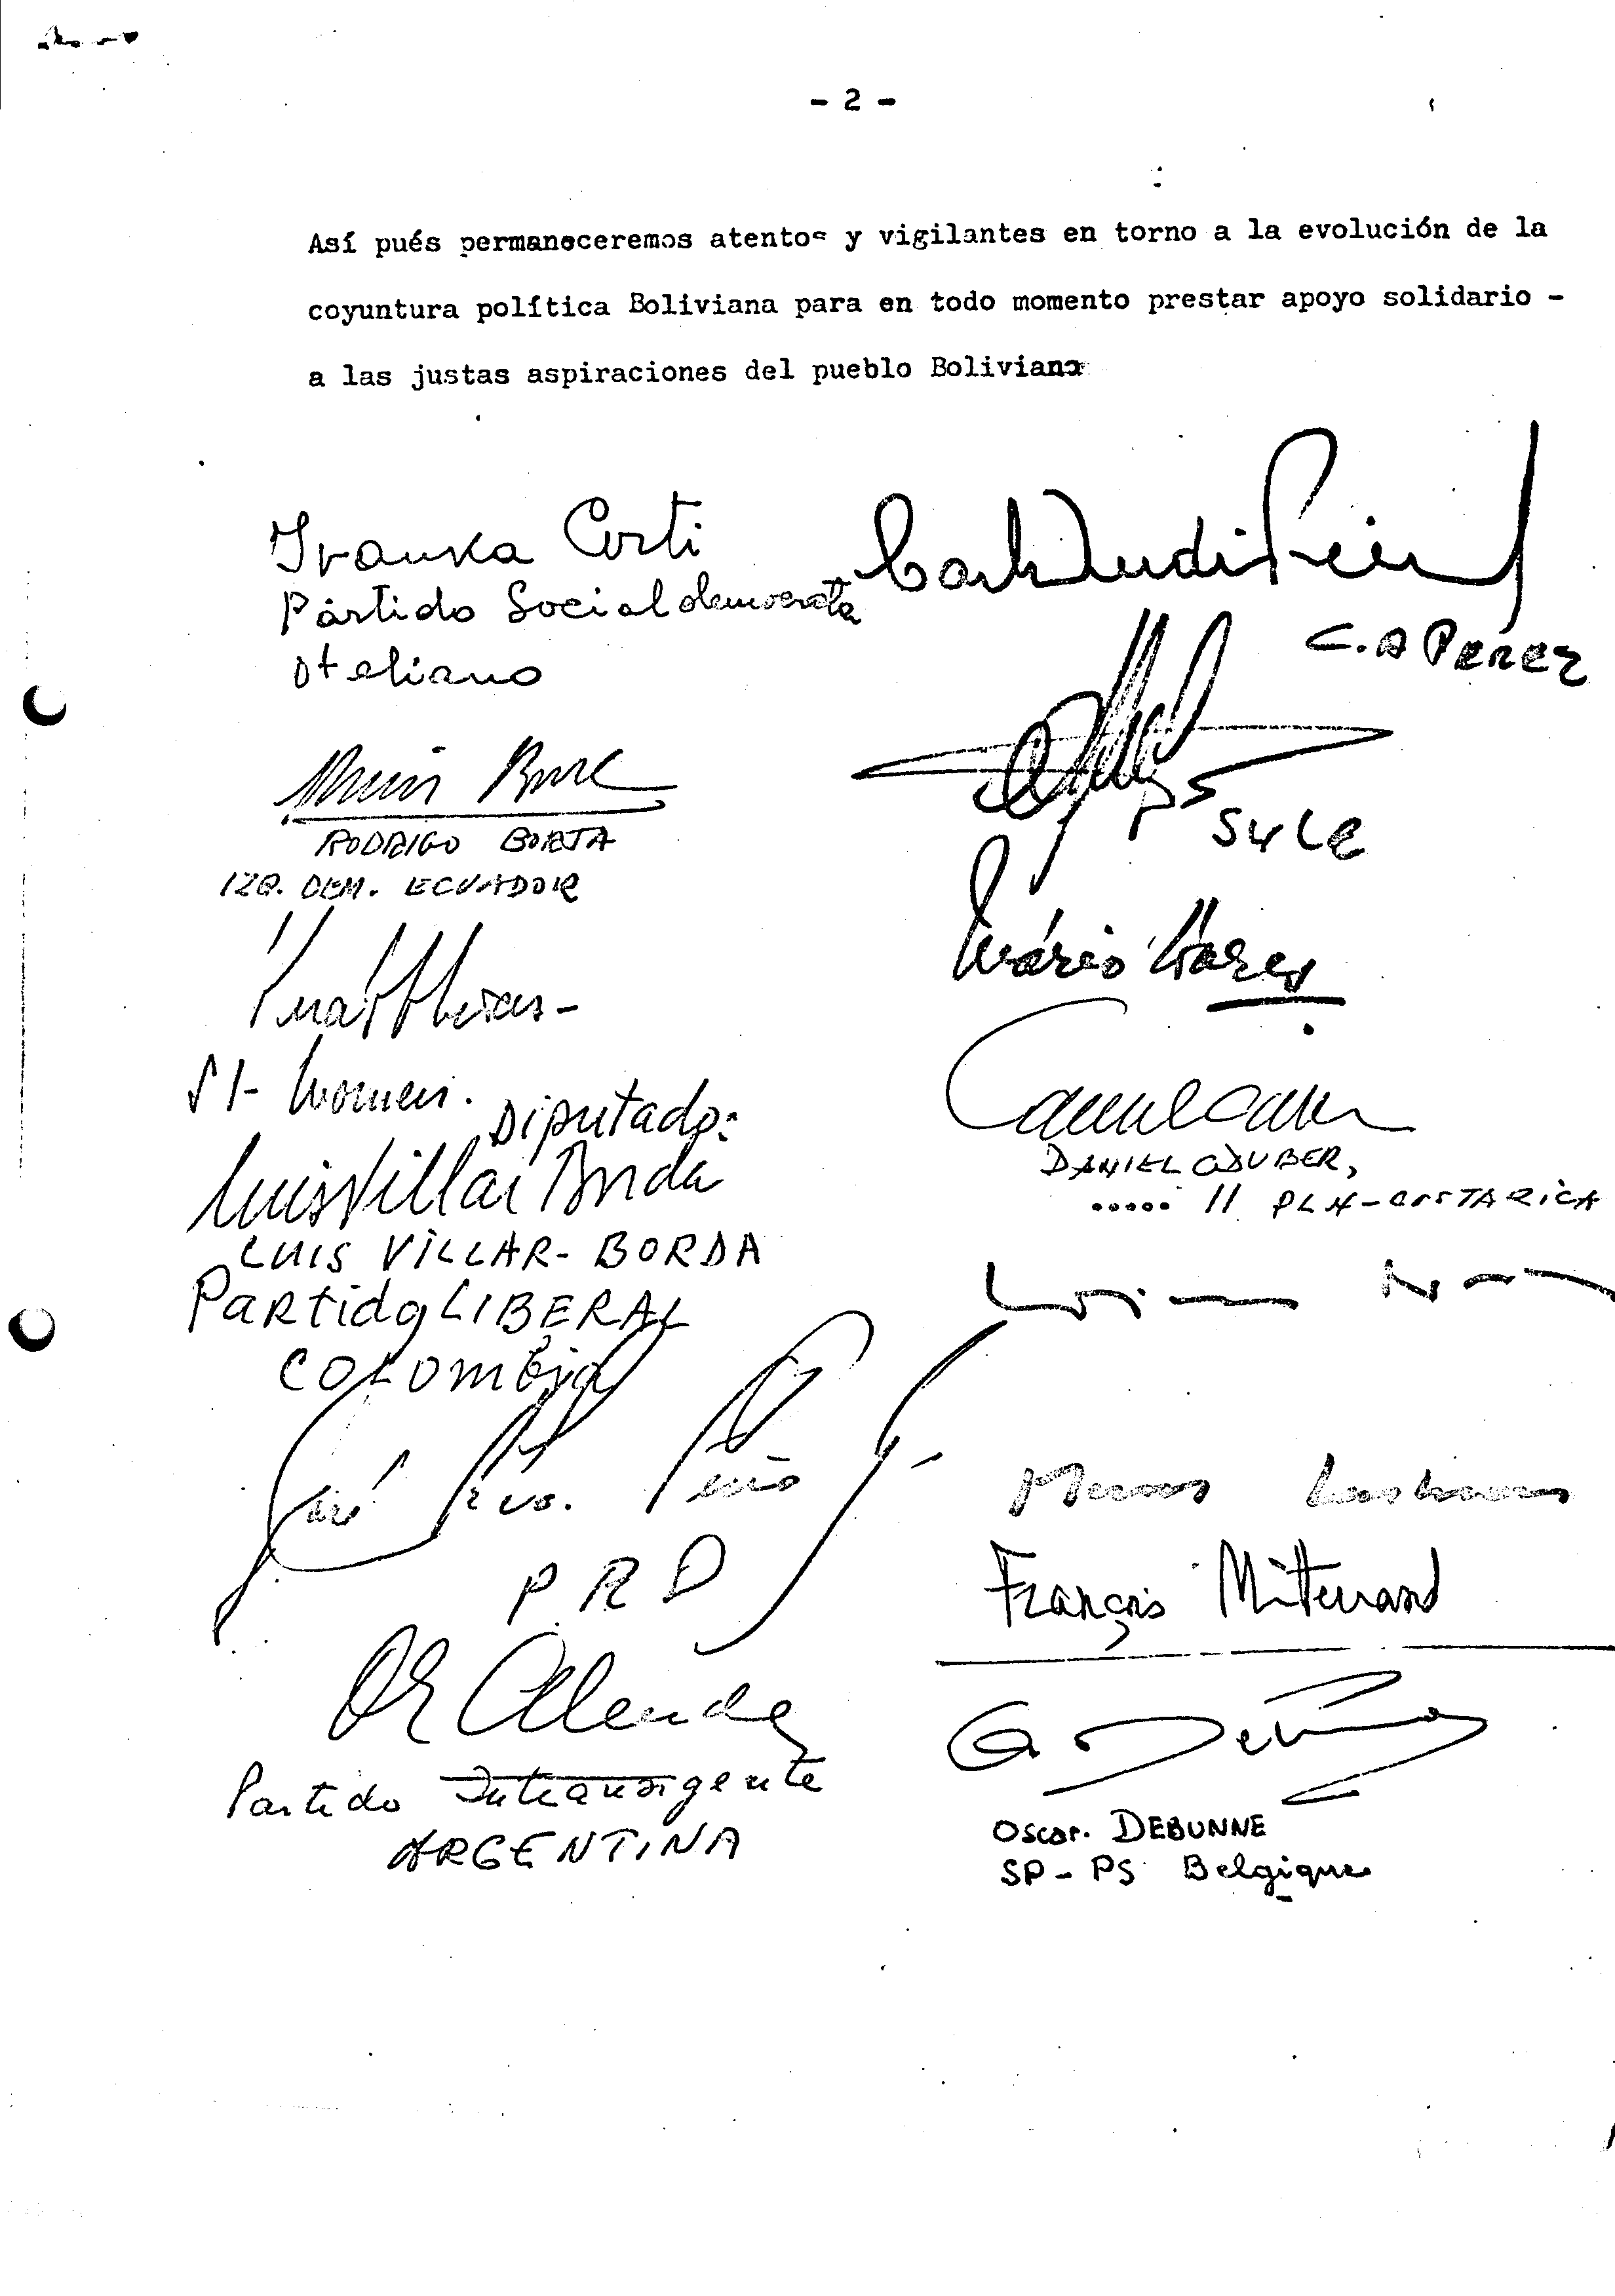 - 2 -
Así pués permaneceremos atentos y vigilantes en torno a la evolución de la
coyuntura política Boliviana para en todo momento prestar apoyo solidario -
a las justas aspiraciones del pueblo Boliviano
Ivanka Corti
Partido Socialdemocrata
Italiano
C. A PEREZ
RODRIGO BORJA
IZQ. DEM. ECUADOR
SULE
Mário Soares
SI- Women.
Diputado:
Luis Villar Borda
LUIS VILLAR-BORDA
Partido LIBERAL
COLOMBIA
DANIEL ODUBER,
..... PLN-COSTA RICA
José Fco. Peña
P R D
François Mitterrand
OE Alende
Partido Intransigente
ARGENTINA
Oscar. DEBUNNE
SP - PS Belgique